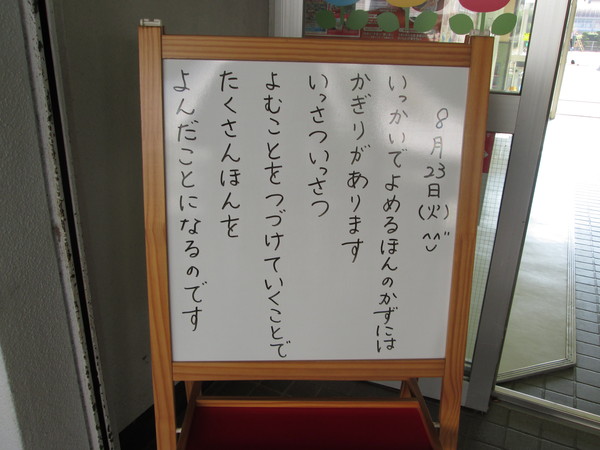 8月23日(火)^^
いっかいでよめるほんのかずには
かぎりがあります
いっさついっさつ
よむことをつづけていくことで
たくさんほんを
よんだことになるのです